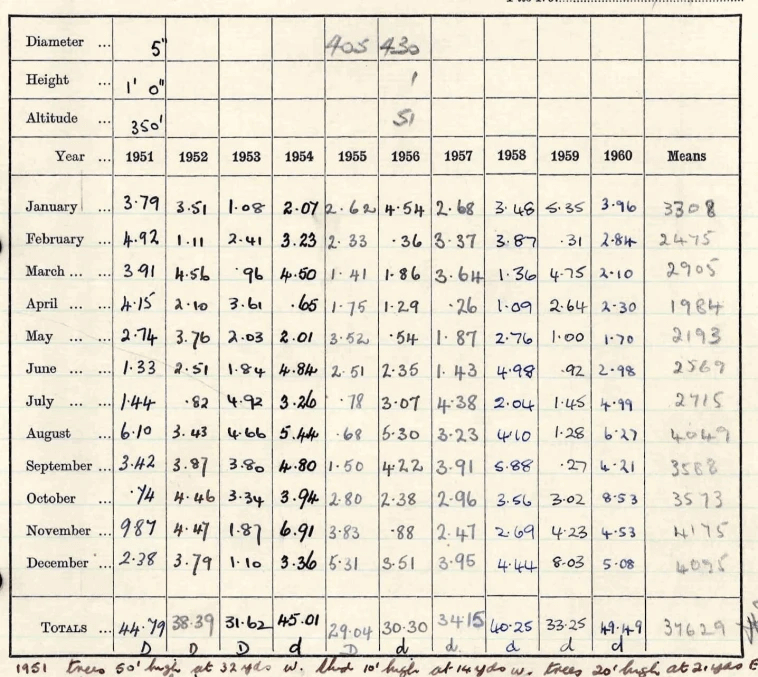 Diameter ... 5" 405 430
Height ... 1' 0" 1
Altitude ... 350' 51
Year ... 1951 1952 1953 1954 1955 1956 1957 1958 1959 1960 Means
January ... 3.79 3.51 1.08 2.07 2.62 4.54 2.68 3.48 5.35 3.96 3308
February ... 4.92 1.11 2.41 3.23 2.33 .36 3.37 3.87 .31 2.84 2475
March ... ... 3.91 4.56 .96 4.50 1.41 1.86 3.64 1.36 4.75 2.10 2905
April ... 4.15 2.10 3.61 .65 1.75 1.29 .26 1.09 2.64 2.30 1984
May ... ... 2.74 3.76 2.03 2.01 3.52 .54 1.87 2.76 1.00 1.70 2193
June ... ... 1.33 2.51 1.84 4.84 2.51 2.35 1.43 4.98 .92 2.98 2569
July ... ... 1.44 .82 4.92 3.26 .78 3.07 4.38 2.04 1.45 4.99 2715
August ... 6.10 3.43 4.66 5.44 .68 5.30 3.23 4.10 1.28 6.27 4049
September ... 3.42 3.87 3.80 4.80 1.50 4.22 3.91 5.88 .27 4.21 3588
October ... .74 4.46 3.34 3.94 2.80 2.38 2.96 3.56 3.02 8.53 3573
November ... 9.87 4.47 1.87 6.91 3.83 .88 2.47 2.69 4.23 4.53 4175
December ... 2.38 3.79 1.10 3.36 5.31 3.51 3.95 4.44 8.03 5.08 4095
TOTALS ... 44.79 38.39 31.62 45.01 29.04 30.30 34.15 40.25 33.25 49.49 37629
D D D d D d d d d d
1951 trees 50' high at 32 yds W. shed 10' high at 14 yds W. trees 20' high at 21 yds E